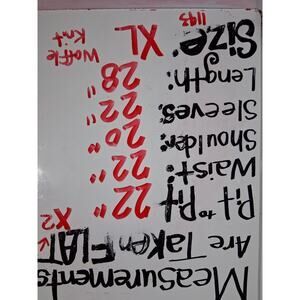 Measurements
Are Taken FLAT
X2
Pit to Pit 22"
Waist: 22"
Shoulder: 20"
Sleeves: 22"
Length: 28"
Size: XL
Waffle
Knit
1193